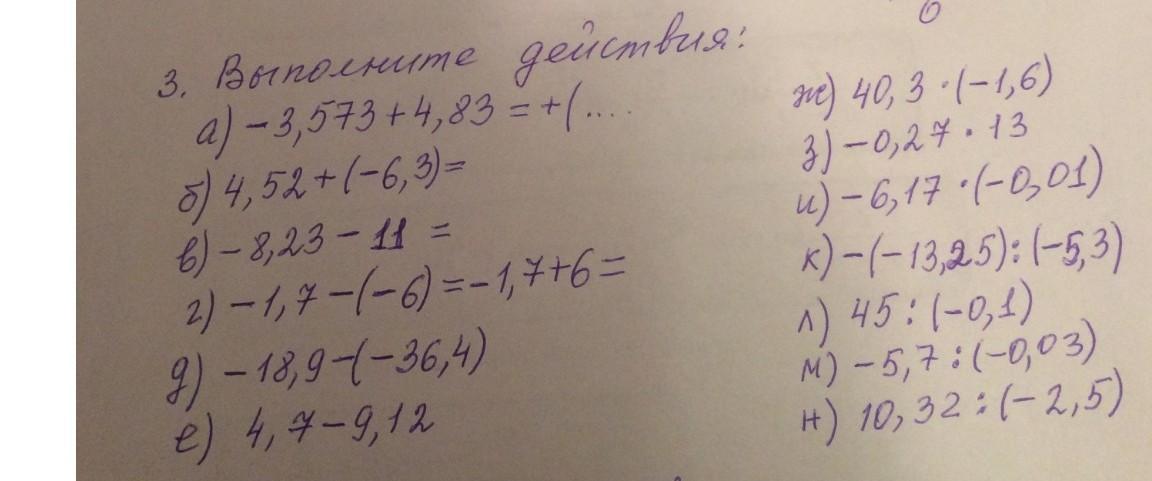 3. Выполните действия:
а) -3,573+4,83 = +(....
б) 4,52+(-6,3)=
в) -8,23 - 11 =
г) -1,7-(-6)=-1,7+6=
д) -18,9-(-36,4)
е) 4,7-9,12
ж) 40,3·(-1,6)
з) -0,27·13
и) -6,17·(-0,01)
к) -(-13,25):(-5,3)
л) 45:(-0,1)
м) -5,7:(-0,03)
н) 10,32:(-2,5)